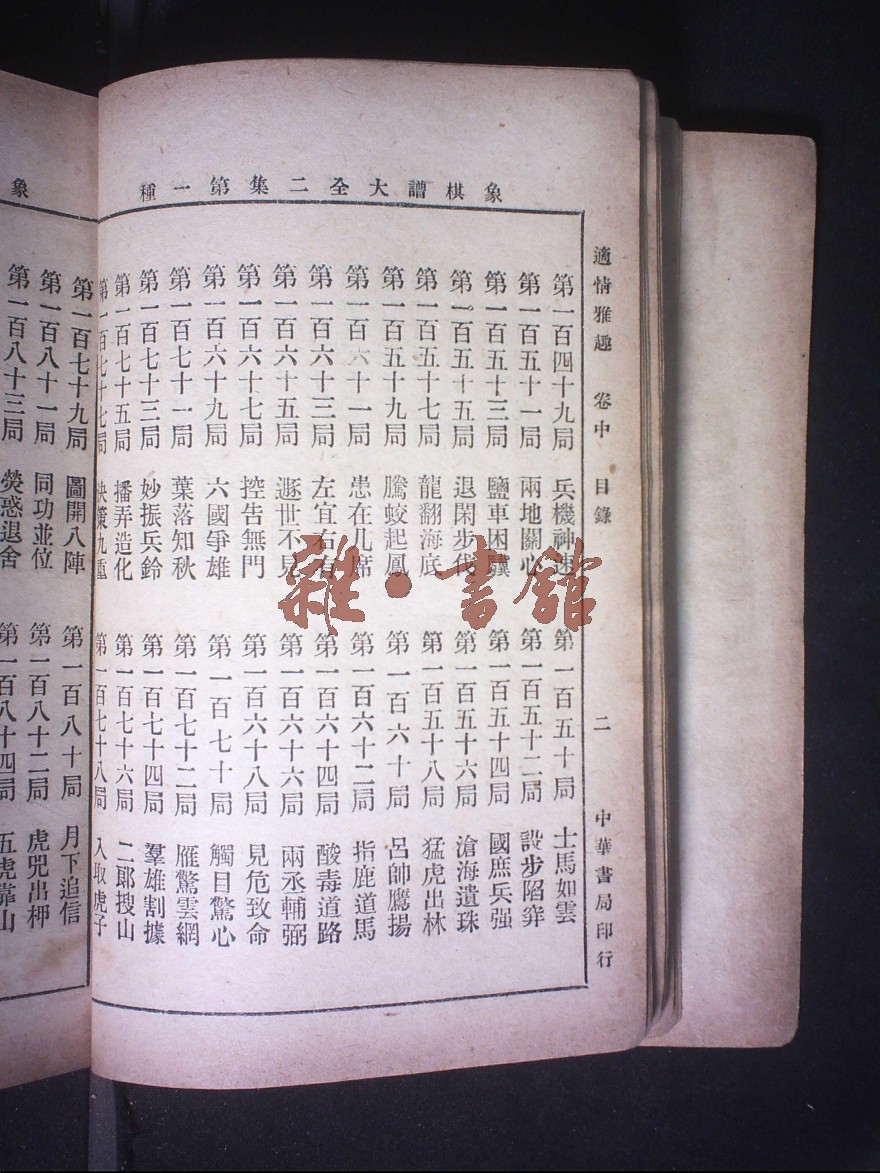 象棋譜大全二集第一種
適情雅趣 卷中 目錄 二 中華書局印行
第一百四十九局 兵機神速 第一百五十局 士馬如雲
第一百五十一局 兩地關心 第一百五十二局 設步陷穽
第一百五十三局 鹽車困驥 第一百五十四局 國庶兵强
第一百五十五局 退閑步伐 第一百五十六局 滄海遺珠
第一百五十七局 龍翻海底 第一百五十八局 猛虎出林
第一百五十九局 騰蛟起鳳 第一百六十局 呂帥鷹揚
第一百六十一局 患在几席 第一百六十二局 指鹿道馬
第一百六十三局 左宜右有 第一百六十四局 酸毒道路
第一百六十五局 遯世不見 第一百六十六局 兩丞輔弼
第一百六十七局 控告無門 第一百六十八局 見危致命
第一百六十九局 六國爭雄 第一百七十局 觸目驚心
第一百七十一局 葉落知秋 第一百七十二局 雁驚雲網
第一百七十三局 妙振兵鈴 第一百七十四局 羣雄割據
第一百七十五局 播弄造化 第一百七十六局 二郞搜山
第一百七十七局 決策九重 第一百七十八局 入取虎子
象
第一百七十九局 圖開八陣 第一百八十局 月下追信
第一百八十一局 同功並位 第一百八十二局 虎兕出柙
第一百八十三局 熒惑退舍 第一百八十四局 五虎靠山
雜·書館